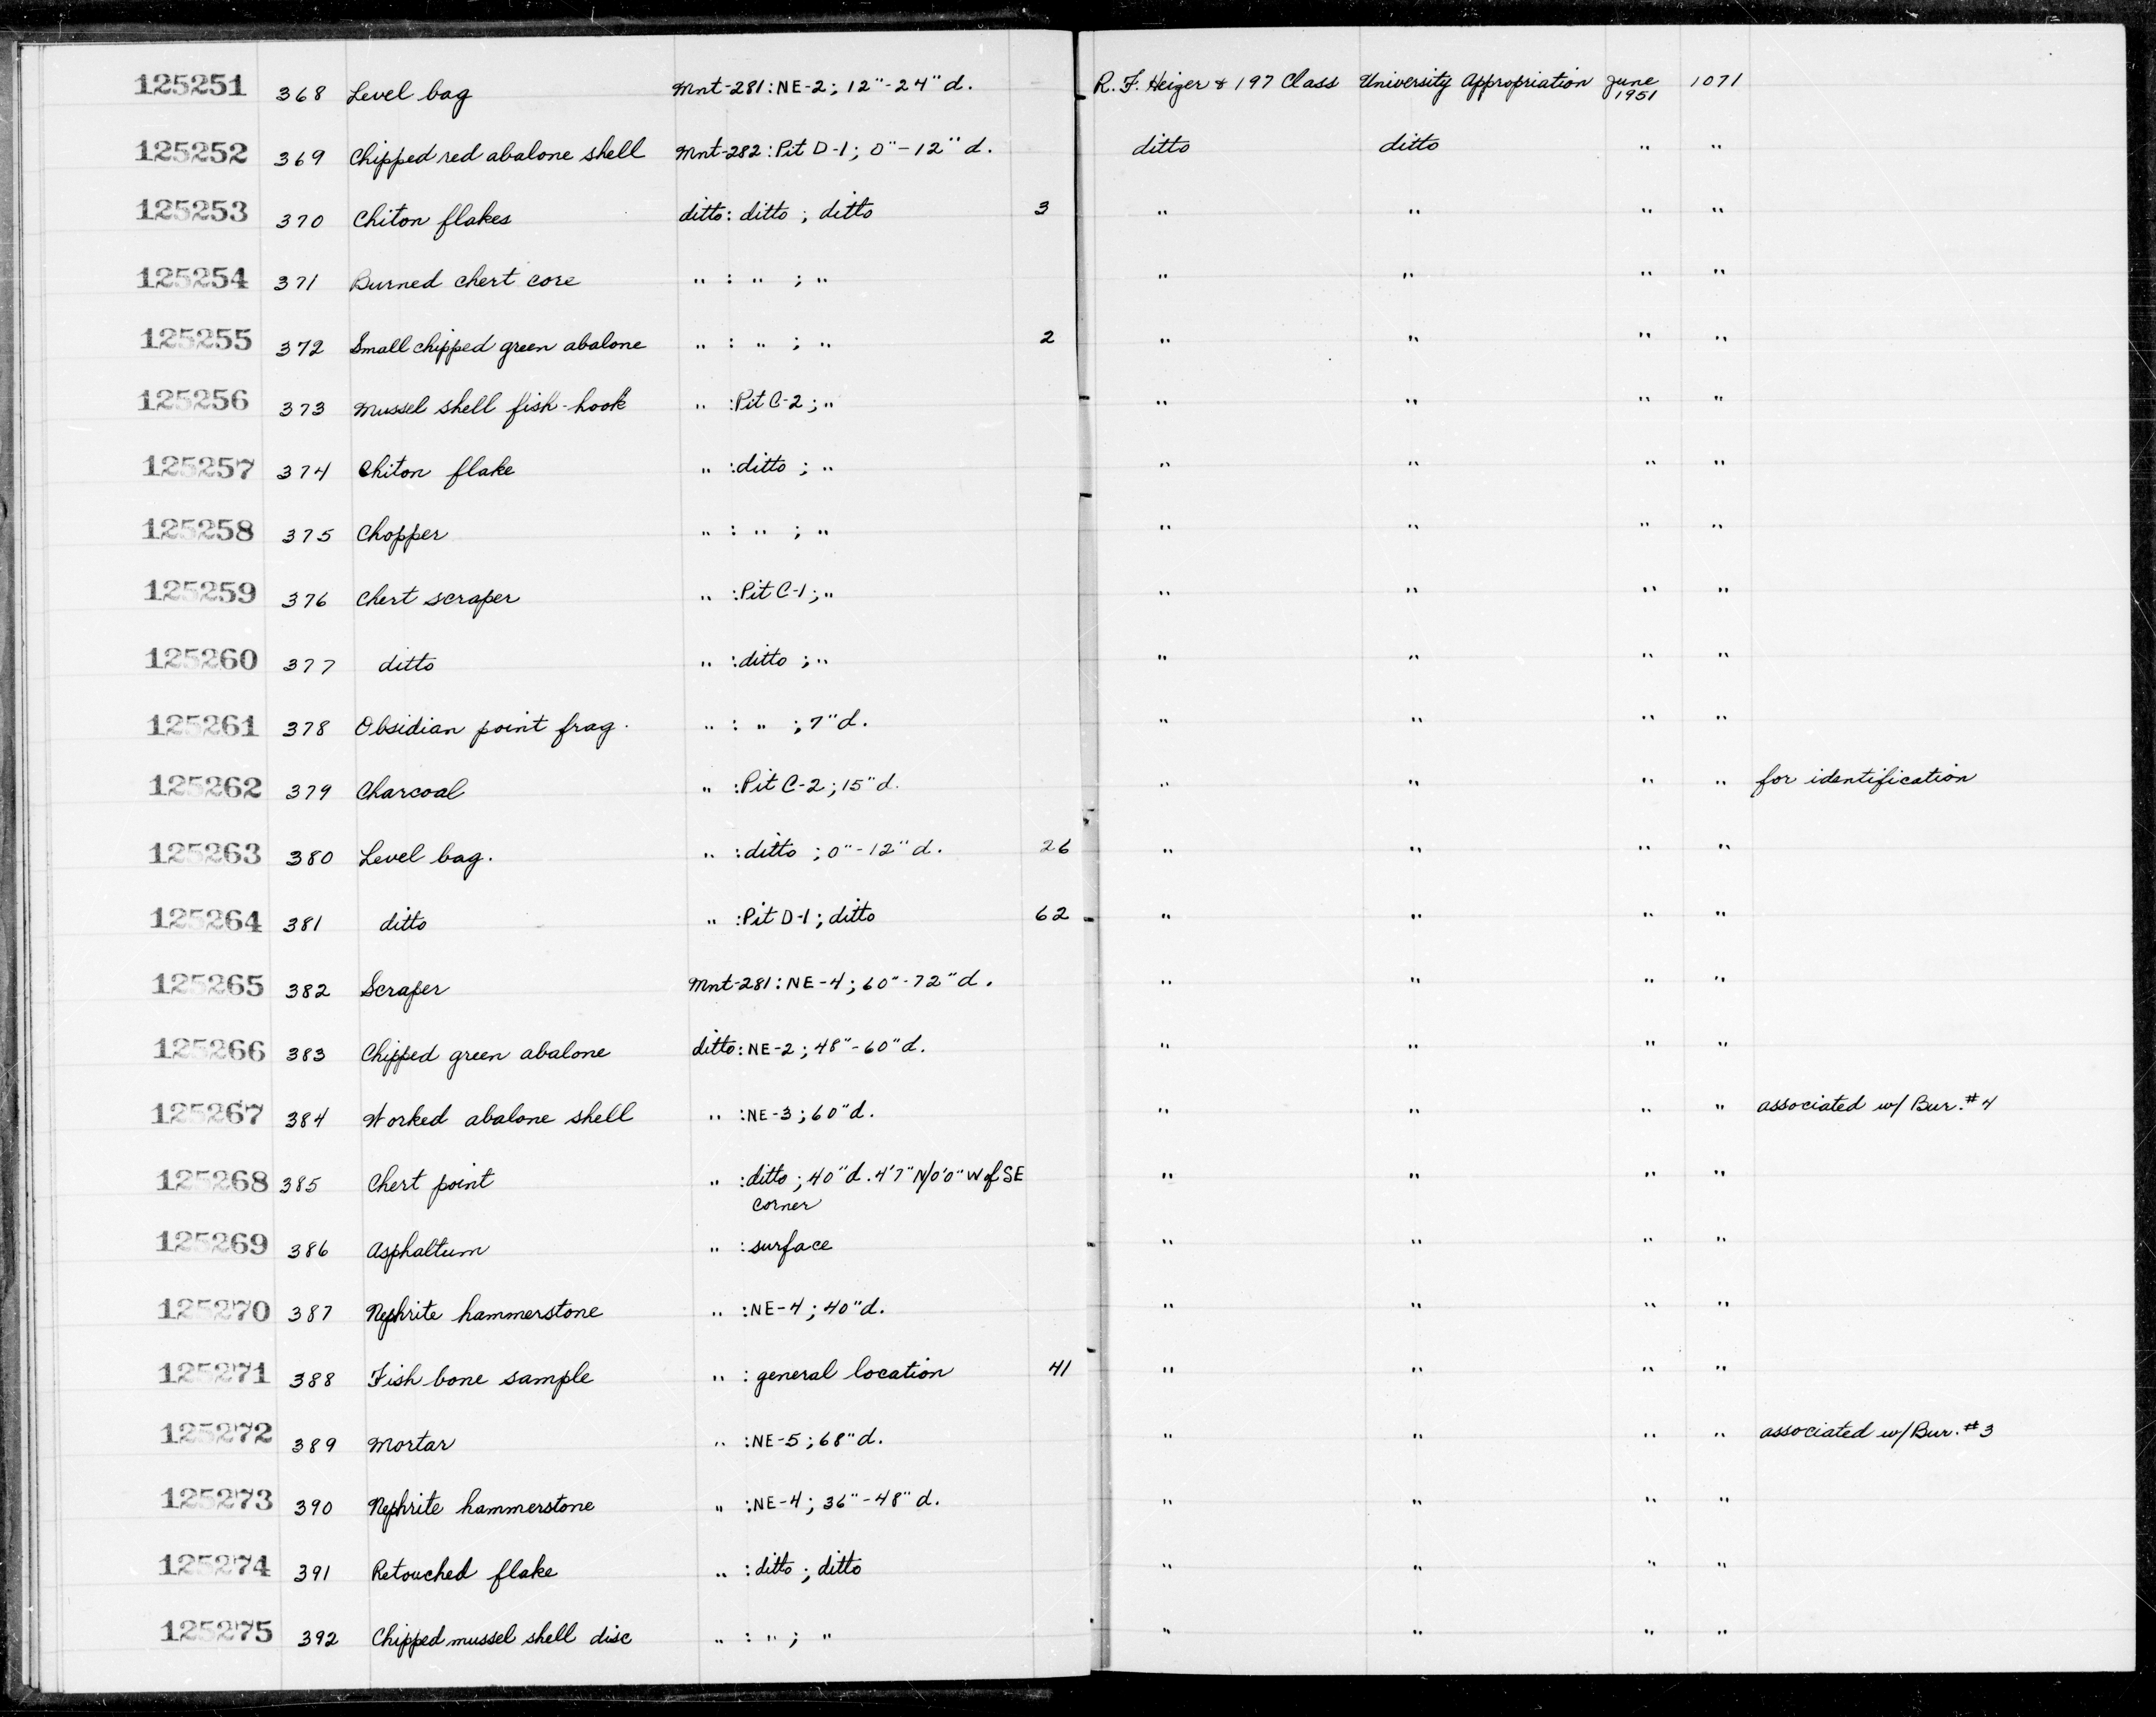 125251 368 Level bag Mnt-281:NE-2; 12"-24" d. R. F. Heizer & 197 Class University Appropriation June 1951 1071
125252 369 Chipped red abalone shell Mnt-282:Pit D-1; 0"-12" d. ditto ditto " "
125253 370 Chiton flakes ditto: ditto ; ditto 3 " " " "
125254 371 Burned chert core " : " ; " " " " "
125255 372 Small chipped green abalone " : " ; " 2 " " " "
125256 373 Mussel shell fish-hook " :Pit C-2; " " " " "
125257 374 Chiton flake " :ditto ; " " " " "
125258 375 Chopper " : " ; " " " " "
125259 376 Chert scraper " :Pit C-1; " " " " "
125260 377 ditto " :ditto ; " " " " "
125261 378 Obsidian point frag. " : " ; 7"d. " " " "
125262 379 Charcoal " :Pit C-2; 15"d. " " " " for identification
125263 380 Level bag. " :ditto ; 0"-12"d. 26 " " " "
125264 381 ditto " :Pit D-1; ditto 62 " " " "
125265 382 Scraper Mnt-281:NE-4; 60"-72"d. " " " "
125266 383 Chipped green abalone ditto:NE-2; 48"-60"d. " " " "
125267 384 Worked abalone shell " :NE-3; 60"d. " " " " associated w/ Bur.#4
125268 385 Chert point " :ditto ; 40"d. 4'7"N/0'0"W of SE " " " "
corner
125269 386 Asphaltum " :surface " " " "
125270 387 Nephrite hammerstone " :NE-4; 40"d. " " " "
125271 388 Fish bone sample " : general location 41 " " " "
125272 389 Mortar " :NE-5; 68"d. " " " " associated w/ Bur.#3
125273 390 Nephrite hammerstone " :NE-4; 36"-48"d. " " " "
125274 391 Retouched flake " : ditto ; ditto " " " "
125275 392 Chipped mussel shell disc " : " ; " " " " "